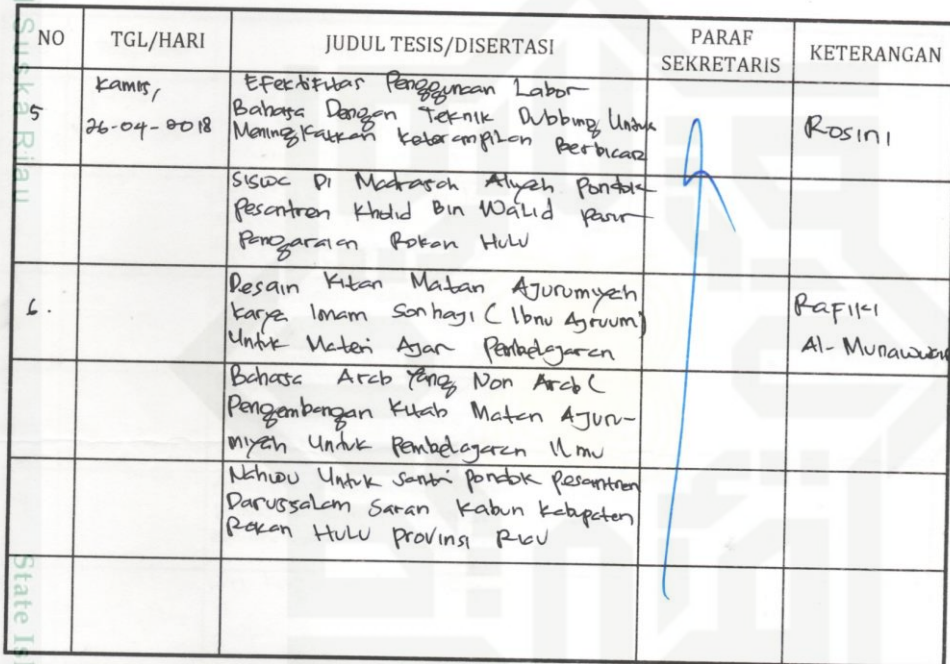 NO TGL/HARI JUDUL TESIS/DISERTASI PARAF SEKRETARIS KETERANGAN
5 Kamis, 26-04-2018 Efektifitas Penggunaan Labor Rosini
Bahasa Dengan Teknik Dubbing Untuk
Meningkatkan Keterampilan Berbicara
Siswa Di Madrasah Aliyah Pondok
Pesantren Khalid Bin Walid Pasir
Pangaraian Rokan Hulu
6. Desain Kitan Matan Ajurumiyah Rafiki Al-Munawwar
Karya Imam Sonhaji ( Ibnu Ajruum)
Untuk Materi Ajar Pembelajaran
Bahasa Arab Yang Non Arab (
Pengembangan Kitab Matan Ajuru-
miyah Untuk Pembelajaran Ilmu
Nahwu Untuk Santri Pondok Pesantren
Darussalam Saran Kabun Kabupaten
Rokan Hulu Provinsi Riau
Suska Riau
State Isl